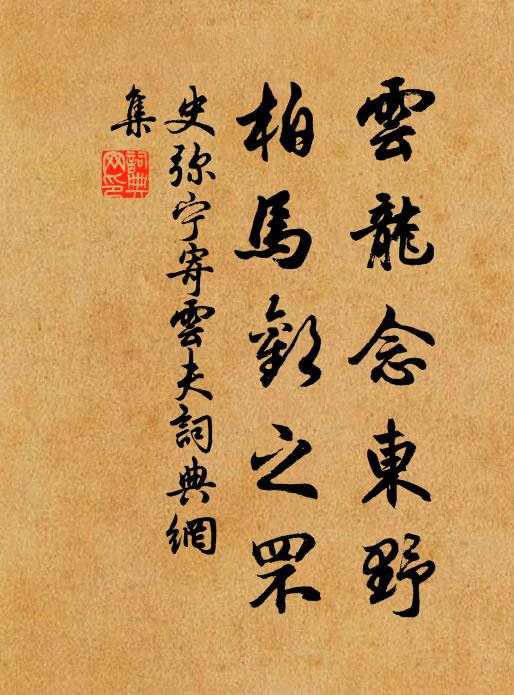 雲龍念東野
柏馬之罘
史弥宁寄雲夫詞典網
集
詞典网印